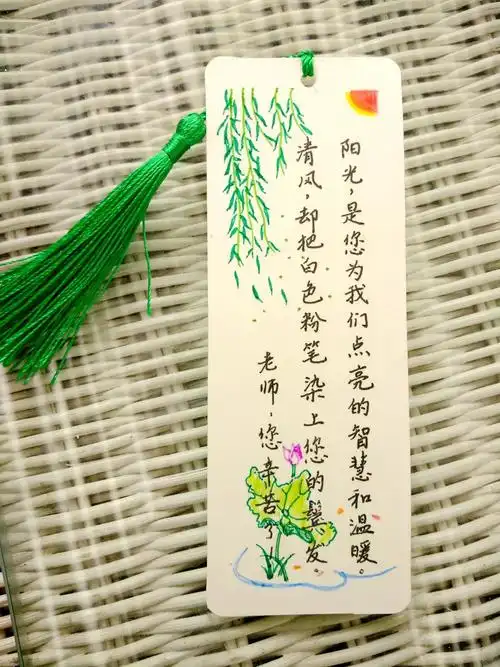 阳光，是您为我们点亮的智慧和温暖。
清风，却把白色粉笔染上您的鬓发。
老师，您辛苦了